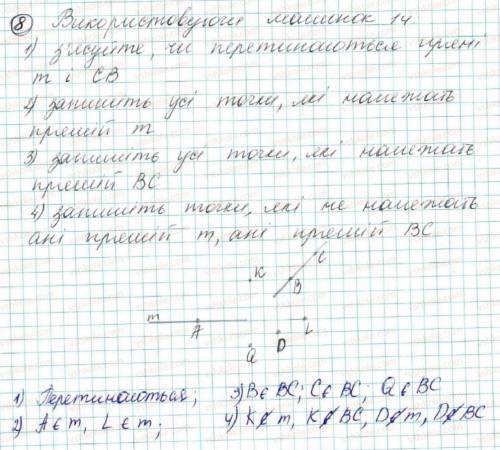 8 Використовуючи малюнок 14
1) з'ясуйте, чи перетинаються прямі
m і СВ
2) запишіть усі точки, які належать
прямій m
3) запишіть усі точки, які належать
прямій ВС
4) запишіть точки, які не належать
ані прямій m, ані прямій ВС
C
K
B
m
A
L
D
Q
1) Перетинаються; 3) B∈BC; C∈BC; Q∈BC
2) A∈m, L∈m; 4) K∉m, K∉BC, D∉m, D∉BC